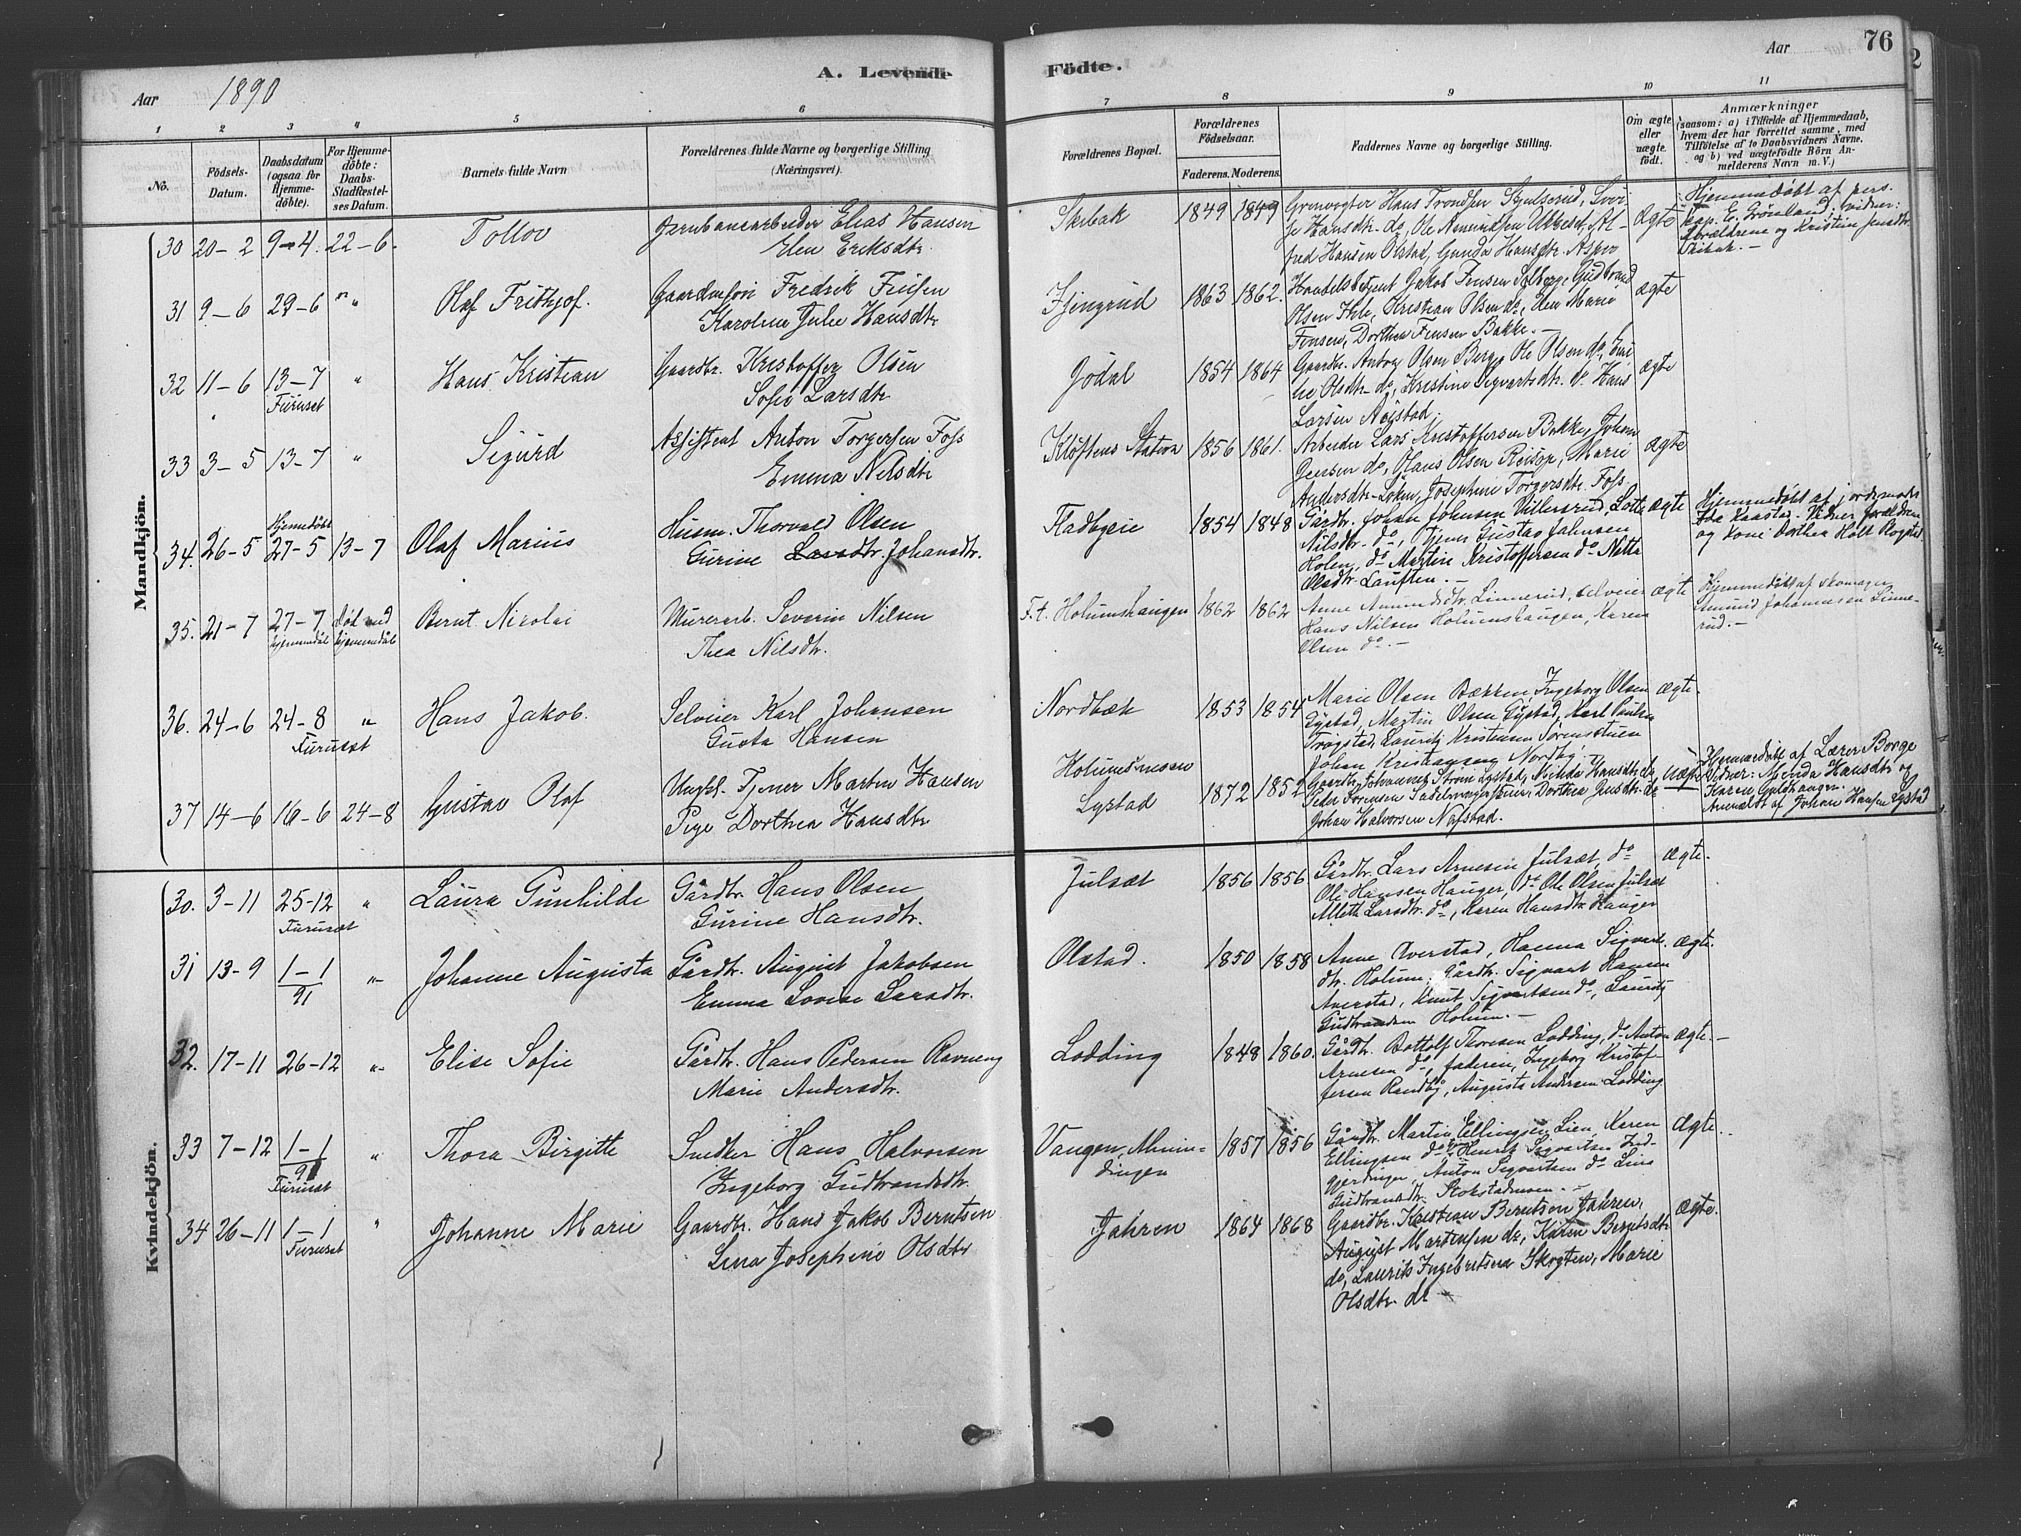 Aar 1890
A. Levende
Födte.
Aar
76
1 2 3 4 5 6 7 8 9 10 11
No.
Födsels-
Datum.
Daabsdatum
(ogsaa for
Hjemme-
döbte).
For Hjemme-
döbte:
Daabs-
Stadfæstel-
ses Datum.
Barnets fulde Navn
Forældrenes fulde Navne og borgerlige Stilling
(Næringsvei).
Forældrenes Bopæl.
Forældrenes
Födselsaar.
Faderens. Moderens.
Faddernes Navne og borgerlige Stilling.
Om ægte
eller
uægte
födt.
Anmærkninger
(saasom: a) i Tilfælde af Hjemmedaab,
hvem der har forrettet samme, med
Tilföielse af to Daabsvidners Navne.
og b) ved uægtefödte Börn An-
melderens Navn m. V.)
Mandkjön.
30 20-2 9-4. 22-6. Tollov
Jernbanearbeider Elias Hansen
Elen Eriksdtr.
Skibak 1849 1849
Grenvogter Hans Trondsen
Hansdtr. do, Ole Amundsen
Hansen Olstad, Gunda Hansdtr.
Ægte
Hjemmedøbt af pers.
kap. E. Grønland, vidner:
Forældrene og Kristin
Skibak. -
31 9-6 29-6 " Olaf Frithjof.
Fredrik
Karoline Julie Hansdtr
1863 1862.
Jakob Finsen Solberg, Gudbrand
Olsen Ihle, Kristian Olsen do, Elen Marie
Finsen, Dorthea Finsen Bakke. -
ægte
32 11-6 13-7 " Hans Kristian
Furuset
Gaardbr. Kristoffer Olsen
Sofie Larsdtr
Jødal 1854 1864
Gaardbr. Anton Olsen Berg, Ole Olsen do, Emi-
lie Olsdtr. do, Kristine Sigvartsdtr. do Hans
Larsen
ægte
33 3-5 13-7 " Sigurd
Assistent Anton Torgersen Foss
Emma Nilsdtr
Kløftens Station 1856 1861.
Arbeider Lars Kristoffersen Bakke, Johan
Jensen do, Olaus Olsen Reisop, Marie
Andersdtr. Løken, Josephine Torgersdtr. Foss.
ægte
34. 26-5 Hjemmedøbt
27-5 13-7 Olaf Marius
Husm. Thorvald Olsen
Gurine Larsdtr. Johansdtr.
Fladbyeie 1854 1848
Gårdbr. Johan Johnsen Lotte
Nilsdtr. do, Gustav Johnsen
Holen, do Martin Kristoffersen do Netta
Olsdtr.
ægte
Hjemmedøbt af jordemoder
Kaastad. Vidner forældrene
og kone Dorthea Holt Rogstad
35. 21-7 27-7
hjemmedøbt
død ved
hjemmedåb
Bernt Nicolai
Murerarb. Severin Nilsen
Thea Nilsdtr.
F.t. Holumshaugen 1862 1862
Anne Amundsdtr. Linnerud, selveier
Hans Nilsen Holumshaugen, Karen
Olsen do. -
ægte
Hjemmedøbt af skomager
Amund Johannesen Linne-
rud. -
36. 24-6 24-8 " Hans Jakob.
Furuset
Selveier Karl Johansen
Gusta Hansen
Nordbæk 1853 1854
Marie Olsen Bækken, Ingeborg Olsen
Gystad, Martin Olsen Gystad, Karl Paulsen
Trøgstad, Lauritz Kristensen
Johan Nordby. -
ægte.
37 14-6 16-6 24-8 Gustav Olaf
Ungkl. Tjener Martin Hansen
Pige Dorthea Hansdtr
Holumsmoen
Lystad 1872 1852
Gaardbr. Johannes Strøm Lystad, Milda Hansdtr. do,
Peder Sørensen Dorthea Jensdtr. do
Johan Halvorsen Nafstad.
Uægte
Hjemmedøbt af Lærer Borge
Vidner: Minda Hansdtr og
Karen Guldhaugen.
Anmeldt af Johan Hansen Lystad
Kvindekjön.
30. 3-11 25-12 " Laura Gunhilde
Furuset
Gårdbr. Hans Olsen
Gurine Hansdtr.
Julsæt 1856 1856
Gårdbr. Lars Arnesen Julsæt, do
Ole Hansen Hauger, do Ole Olsen Julsæt
Alleth Larsdtr. do, Karen Hansdtr. Hauger
ægte.
31 13-9 1-1
91 " Johanne Augusta
Gårdbr. August Jakobsen
Emma Lovise Larsdtr.
Olstad. 1850 1858
Anne Averstad, Hanna Sigvart-
dtr. Holum, Gårdbr. Sigvart Hansen
Averstad, Knut Sigvartsen do, Lauritz
Gudbrandsen Holum. -
ægte.
32. 17-11 26-12 " Elise Sofie
Gårdbr. Hans Pedersen Ravneng
Marie Andersdtr.
Lodding 1848 1860.
Gårdbr. Bottolf Thoresen Lodding, do Anton
Arnesen do, faderen, Ingeborg Kristof-
fersen Randby, Augusta Andersen Lodding
ægte. -
33 7-12 1-1
91 " Thora Birgitte
Furuset
Snedker Hans Halvorsen
Ingeborg Gudbrandsdtr.
Vangen, Almin-
dingen 1857 1856
Gårdbr. Martin Ellingsen Lien, Karen
Ellingsen do, Henrik Sigvartsen Ind-
gjerdingen, Anton Sigvartsen do, Lina
Gudbrandsdtr. Stokstadmoen. -
ægte.
34 26-11 1-1 " Johanne Marie
Furuset
Gaardbr. Hans Jakob Berntsen
Lina Josephine Olsdtr
Jahren 1864 1868
Gaardbr. Kristian Berntsen Jahren,
August Martinsen do, Karen Berntsdtr
do, Laurits Ingebretsen Skogten, Marie
Olsdtr. do -
Ægte.